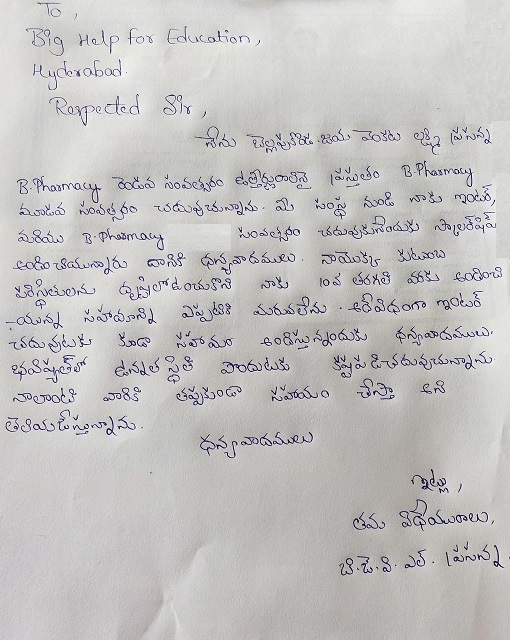 To,
Big Help for Education,
Hyderabad.
Respected Sir,
నేను బెల్లపుకొండ. జయ వెంకట లక్ష్మి ప్రసన్న
B.Pharmacy రెండవ సంవత్సరం ఉత్తీర్ణురాలినై ప్రస్తుతం B.Pharmacy
మూడవ సంవత్సరం చదువుచున్నాను. మీ సంస్థ నుండి నాకు ఇంటర్,
మరియు B.Pharmacy సంవత్సరం చదువుకునేందుకు స్కాలర్‌షిప్
అందించియున్నారు దానికి ధన్యవాదములు. నాయొక్క కుటుంబ
పరిస్థితులను దృష్టిలో ఉంచుకొని నాకు 10వ తరగతి వరకు అందించి
యున్న సహాయాన్ని ఎప్పటికి మరువలేను. అదేవిధంగా ఇంటర్
చదువుటకు కూడా సహాయం అందిస్తున్నందుకు ధన్యవాదములు.
భవిష్యత్‌లో ఉన్నత స్థితి పొందుటకు కష్టపడి చదువుచున్నాను
నాలాంటి వారికి తప్పకుండా సహాయం చేస్తా అని
తెలియజేస్తున్నాను.
ధన్యవాదములు
ఇట్లు,
తమ విధేయురాలు,
బి.జె.వి.ఎల్. ప్రసన్న.